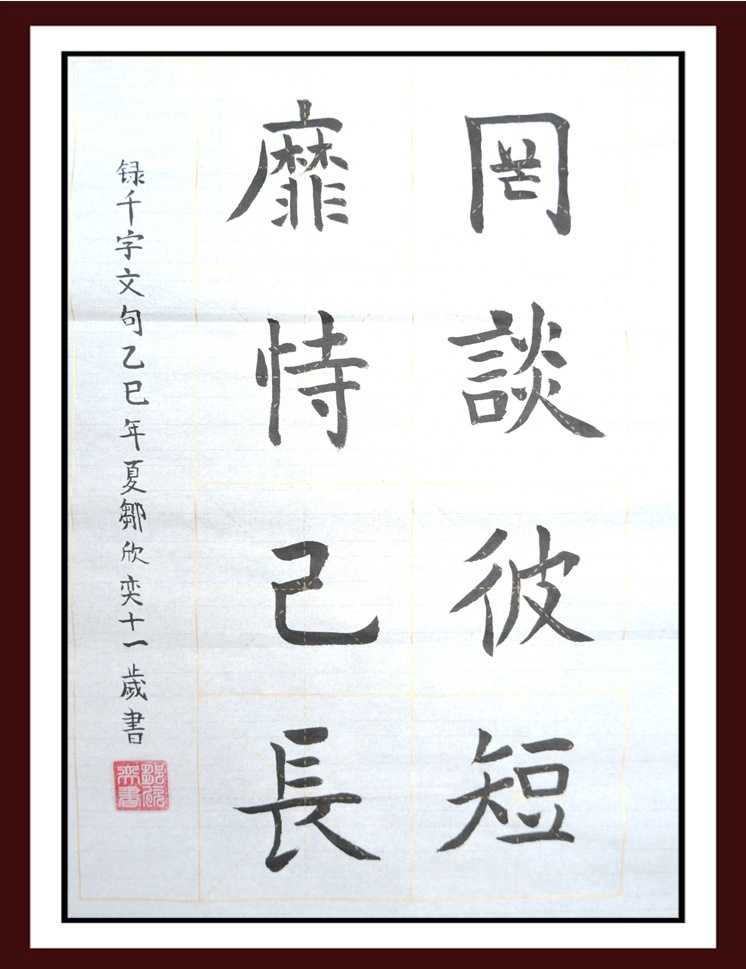 罔談彼短
靡恃己長
録千字文句乙巳年夏鄒欣奕十一歲書
鄒欣奕書